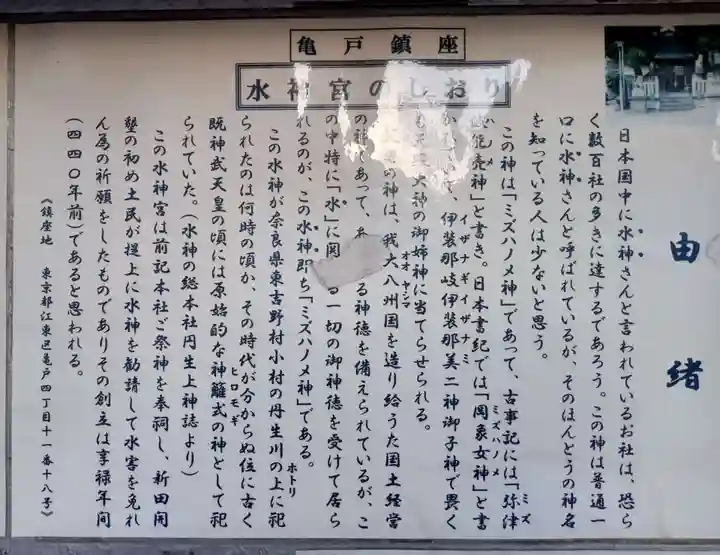 亀戸鎮座
水神宮のしおり
由緒
日本国中に水神さんと言われているお社は、恐ら
く数百社の多きに達するであろう。この神は普通一
口に水神さんと呼ばれているが、そのほんとうの神名
を知っている人は少ないと思う。
この神は「ミズハノメ神」であって、古事記には「弥津
能売神」と書き。日本書紀では「罔象女神」と書
伊装那岐伊装那美二神御子神で畏く
も天 大神の御姉神に当てらせられる。
の神は、我大八州国を造り給うた国土経営
の神であって、あ る神徳を備えられているが、こ
の中特に「水」に関 る一切の御神徳を受けて居ら
れるのが、この水神即ち「ミズハノメ神」である。
この水神が奈良県東吉野村小村の丹生川の上に祀
られたのは何時の頃か、その時代が分からぬ位に古く
既神武天皇の頃には原始的な神籬式の神として祀
られていた。(水神の総本社丹生上神誌より)
この水神宮は前記本社ご祭神を奉祠し、新田開
墾の初め土民が提上に水神を勧請して水害を免れ
ん為の祈願をしたものでありその創立は享禄年間
(四四〇年前)であると思われる。
《鎮座地 東京都江東区亀戸四丁目十一番十八号》